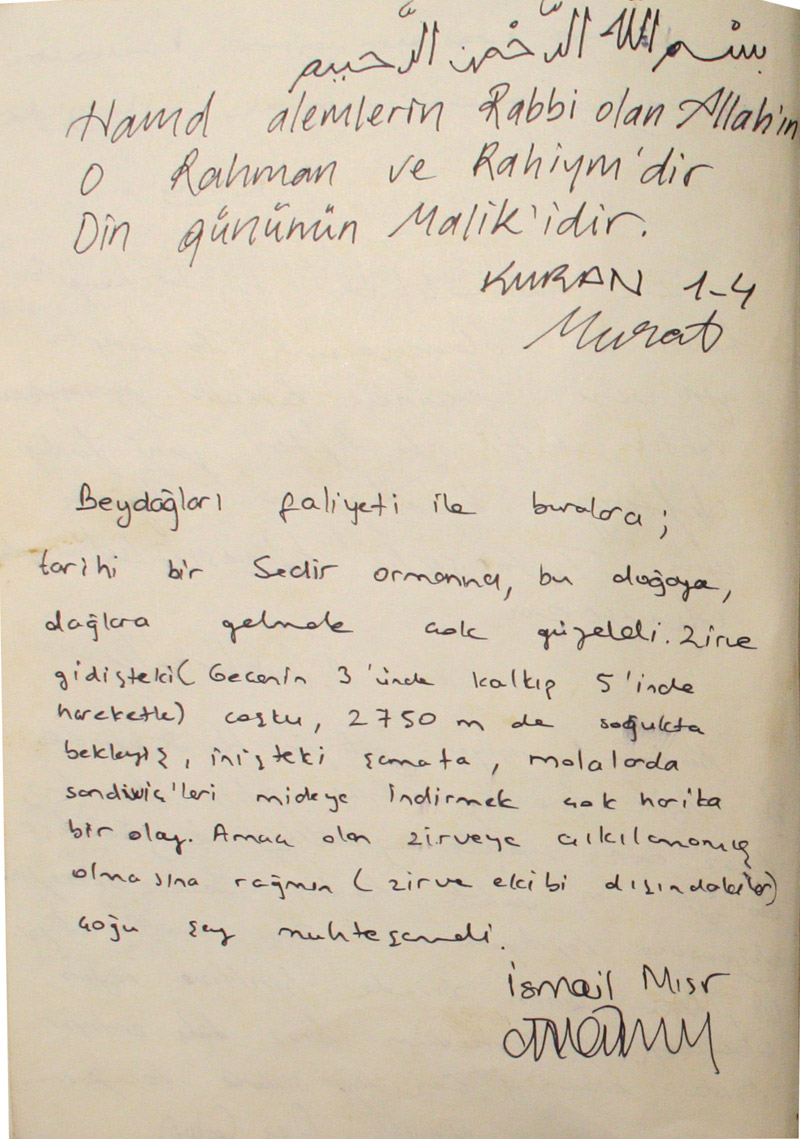 بسم الله الرّحمن الرّحيم
Hamd alemlerin Rabbi olan Allah'ın
O Rahman ve Rahiym'dir
Din gününün Malik'idir.
KURAN 1-4
Murat
Beydağları faliyeti ile buralara;
tarihi bir Sedir ormanına, bu doğaya,
dağlara gelmek çok güzeldi. Zirve
gidişteki (Gecenin 3'ünde kalkıp 5'inde
hareketle) coşku, 2750 m de soğukta
bekleyiş, inişteki şamata, molalarda
sandiviç'leri mideye indirmek çok harika
bir olay. Amacı olan zirveye çıkılamamış
olmasına rağmen (zirve ekibi dışındakiler)
çoğu şey muhteşemdi.
İsmail Mısır